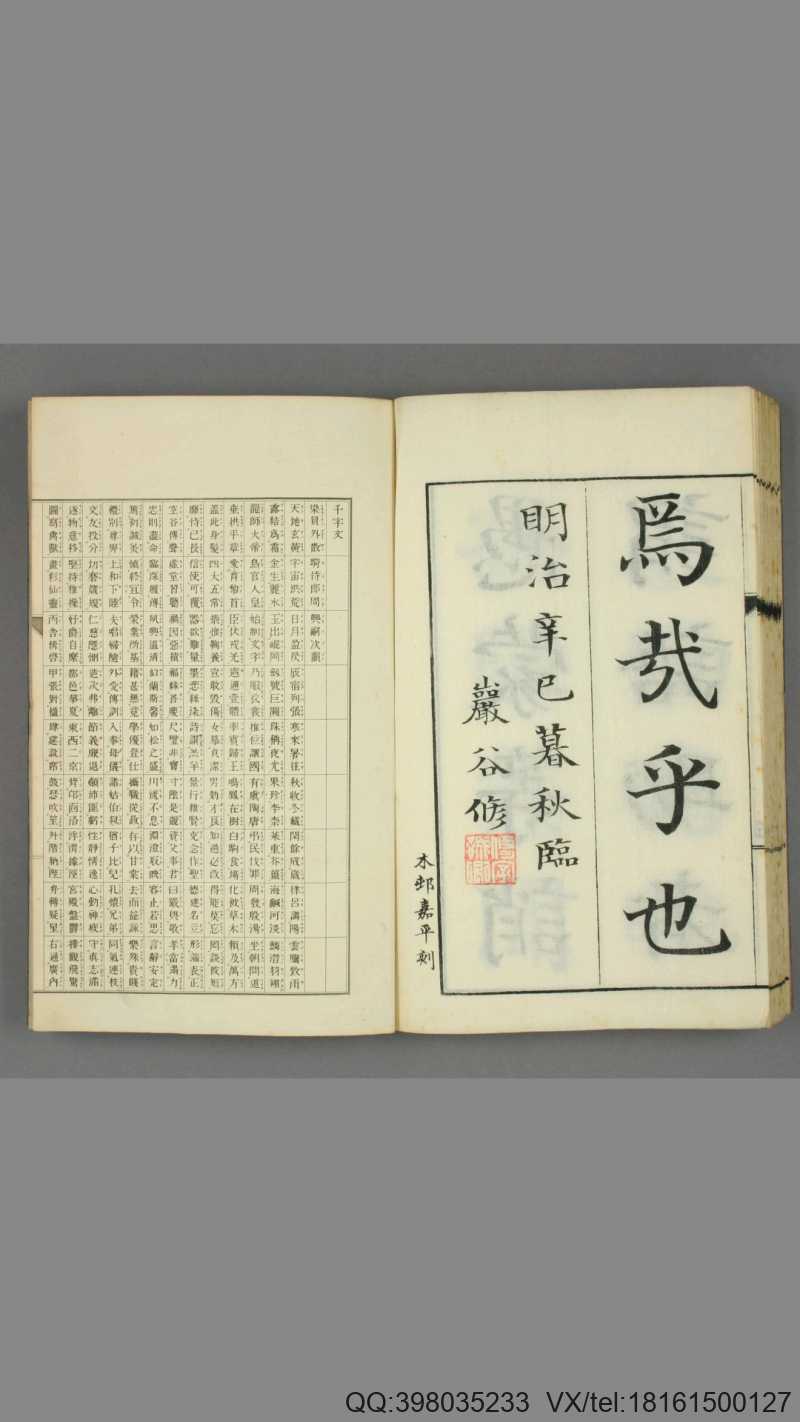 焉哉乎也
明治辛巳暮秋臨
巖谷修
木邨嘉平刻
千字文
梁員外散騎侍郎周興嗣次韻
天地玄黃宇宙洪荒日月盈昃辰宿列張寒來暑往秋收冬藏閏餘成歲律呂調陽雲騰致雨
露結爲霜金生麗水玉出崐岡劍號巨闕珠稱夜光果珍李柰菜重芥薑海鹹河淡鱗潛羽翔
龍師火帝鳥官人皇始制文字乃服衣裳推位讓國有虞陶唐弔民伐罪周發殷湯坐朝問道
垂拱平章愛育黎首臣伏戎羌遐邇壹體率賓歸王鳴鳳在樹白駒食場化被草木賴及萬方
蓋此身髮四大五常恭惟鞠養豈敢毀傷女慕貞潔男效才良知過必改得能莫忘罔談彼短
靡恃己長信使可覆器欲難量墨悲絲染詩讚羔羊景行維賢克念作聖德建名立形端表正
空谷傳聲虛堂習聽禍因惡積福緣善慶尺璧非寶寸陰是競資父事君曰嚴與敬孝當竭力
忠則盡命臨深履薄夙興溫凊似蘭斯馨如松之盛川流不息淵澄取映容止若思言辭安定
篤初誠美慎終宜令榮業所基籍甚無竟學優登仕攝職從政存以甘棠去而益詠樂殊貴賤
禮別尊卑上和下睦夫唱婦隨外受傅訓入奉母儀諸姑伯叔猶子比兒孔懷兄弟同氣連枝
交友投分切磨箴規仁慈隱惻造次弗離節義廉退顛沛匪虧性靜情逸心動神疲守真志滿
逐物意移堅持雅操好爵自縻都邑華夏東西二京背邙面洛浮渭據涇宮殿盤鬱樓觀飛驚
圖寫禽獸畫彩仙靈丙舍傍啓甲帳對楹肆筵設席鼓瑟吹笙升階納陛弁轉疑星右通廣內
QQ:398035233 VX/tel:18161500127